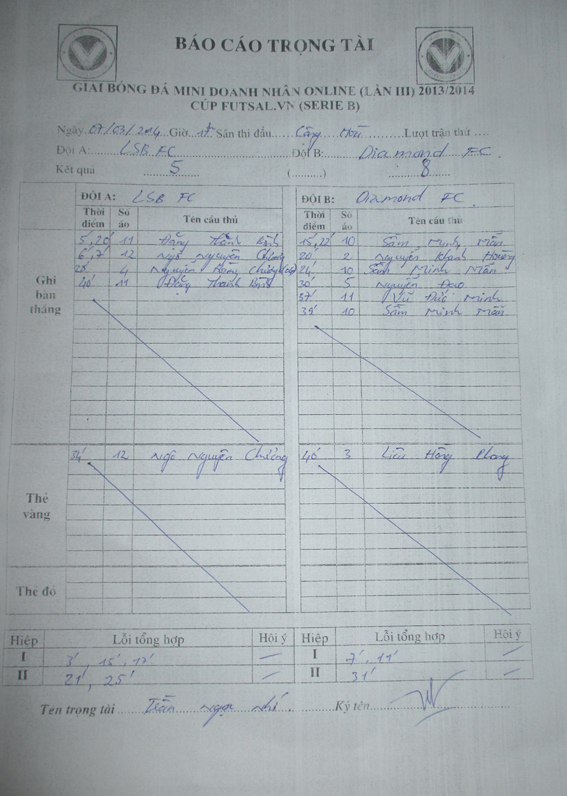 BÁO CÁO TRỌNG TÀI
GIẢI BÓNG ĐÁ MINI DOANH NHÂN ONLINE (LẦN III) 2013/2014
CÚP FUTSAL.VN (SERIE B)
Ngày 07/03/2014 Giờ 17h Sân thi đấu Lượt trận thứ
Đội A: LSB FC Đội B: Diamond FC.
Kết quả 5 (..........) 8
ĐỘI A: LSB FC ĐỘI B: Diamond FC.
Thời điểm Số áo Tên cầu thủ Thời điểm Số áo Tên cầu thủ
Ghi bàn thắng
11 Đặng Thành 10 Sầm Minh Mẫn
12 Ngô Nguyên Chương 20' 2 Nguyễn Khánh Hoàng
4 Nguyễn 24' 10 Sầm Minh Mẫn
40' 11 Đặng Thành 30' 5 Nguyễn Đạo
37' 11 Vũ Đức Minh
39' 10 Sầm Minh Mẫn
Thẻ vàng
34' 12 Ngô Nguyên Chương 40' 3 Liêu Hồng Phong
Thẻ đỏ
Hiệp Lỗi tổng hợp Hội ý Hiệp Lỗi tổng hợp Hội ý
I 3', 15', 17' — I 7', 11' —
II 21', 25' — II 31' —
Tên trọng tài Trần Ngọc Nhí Ký tên